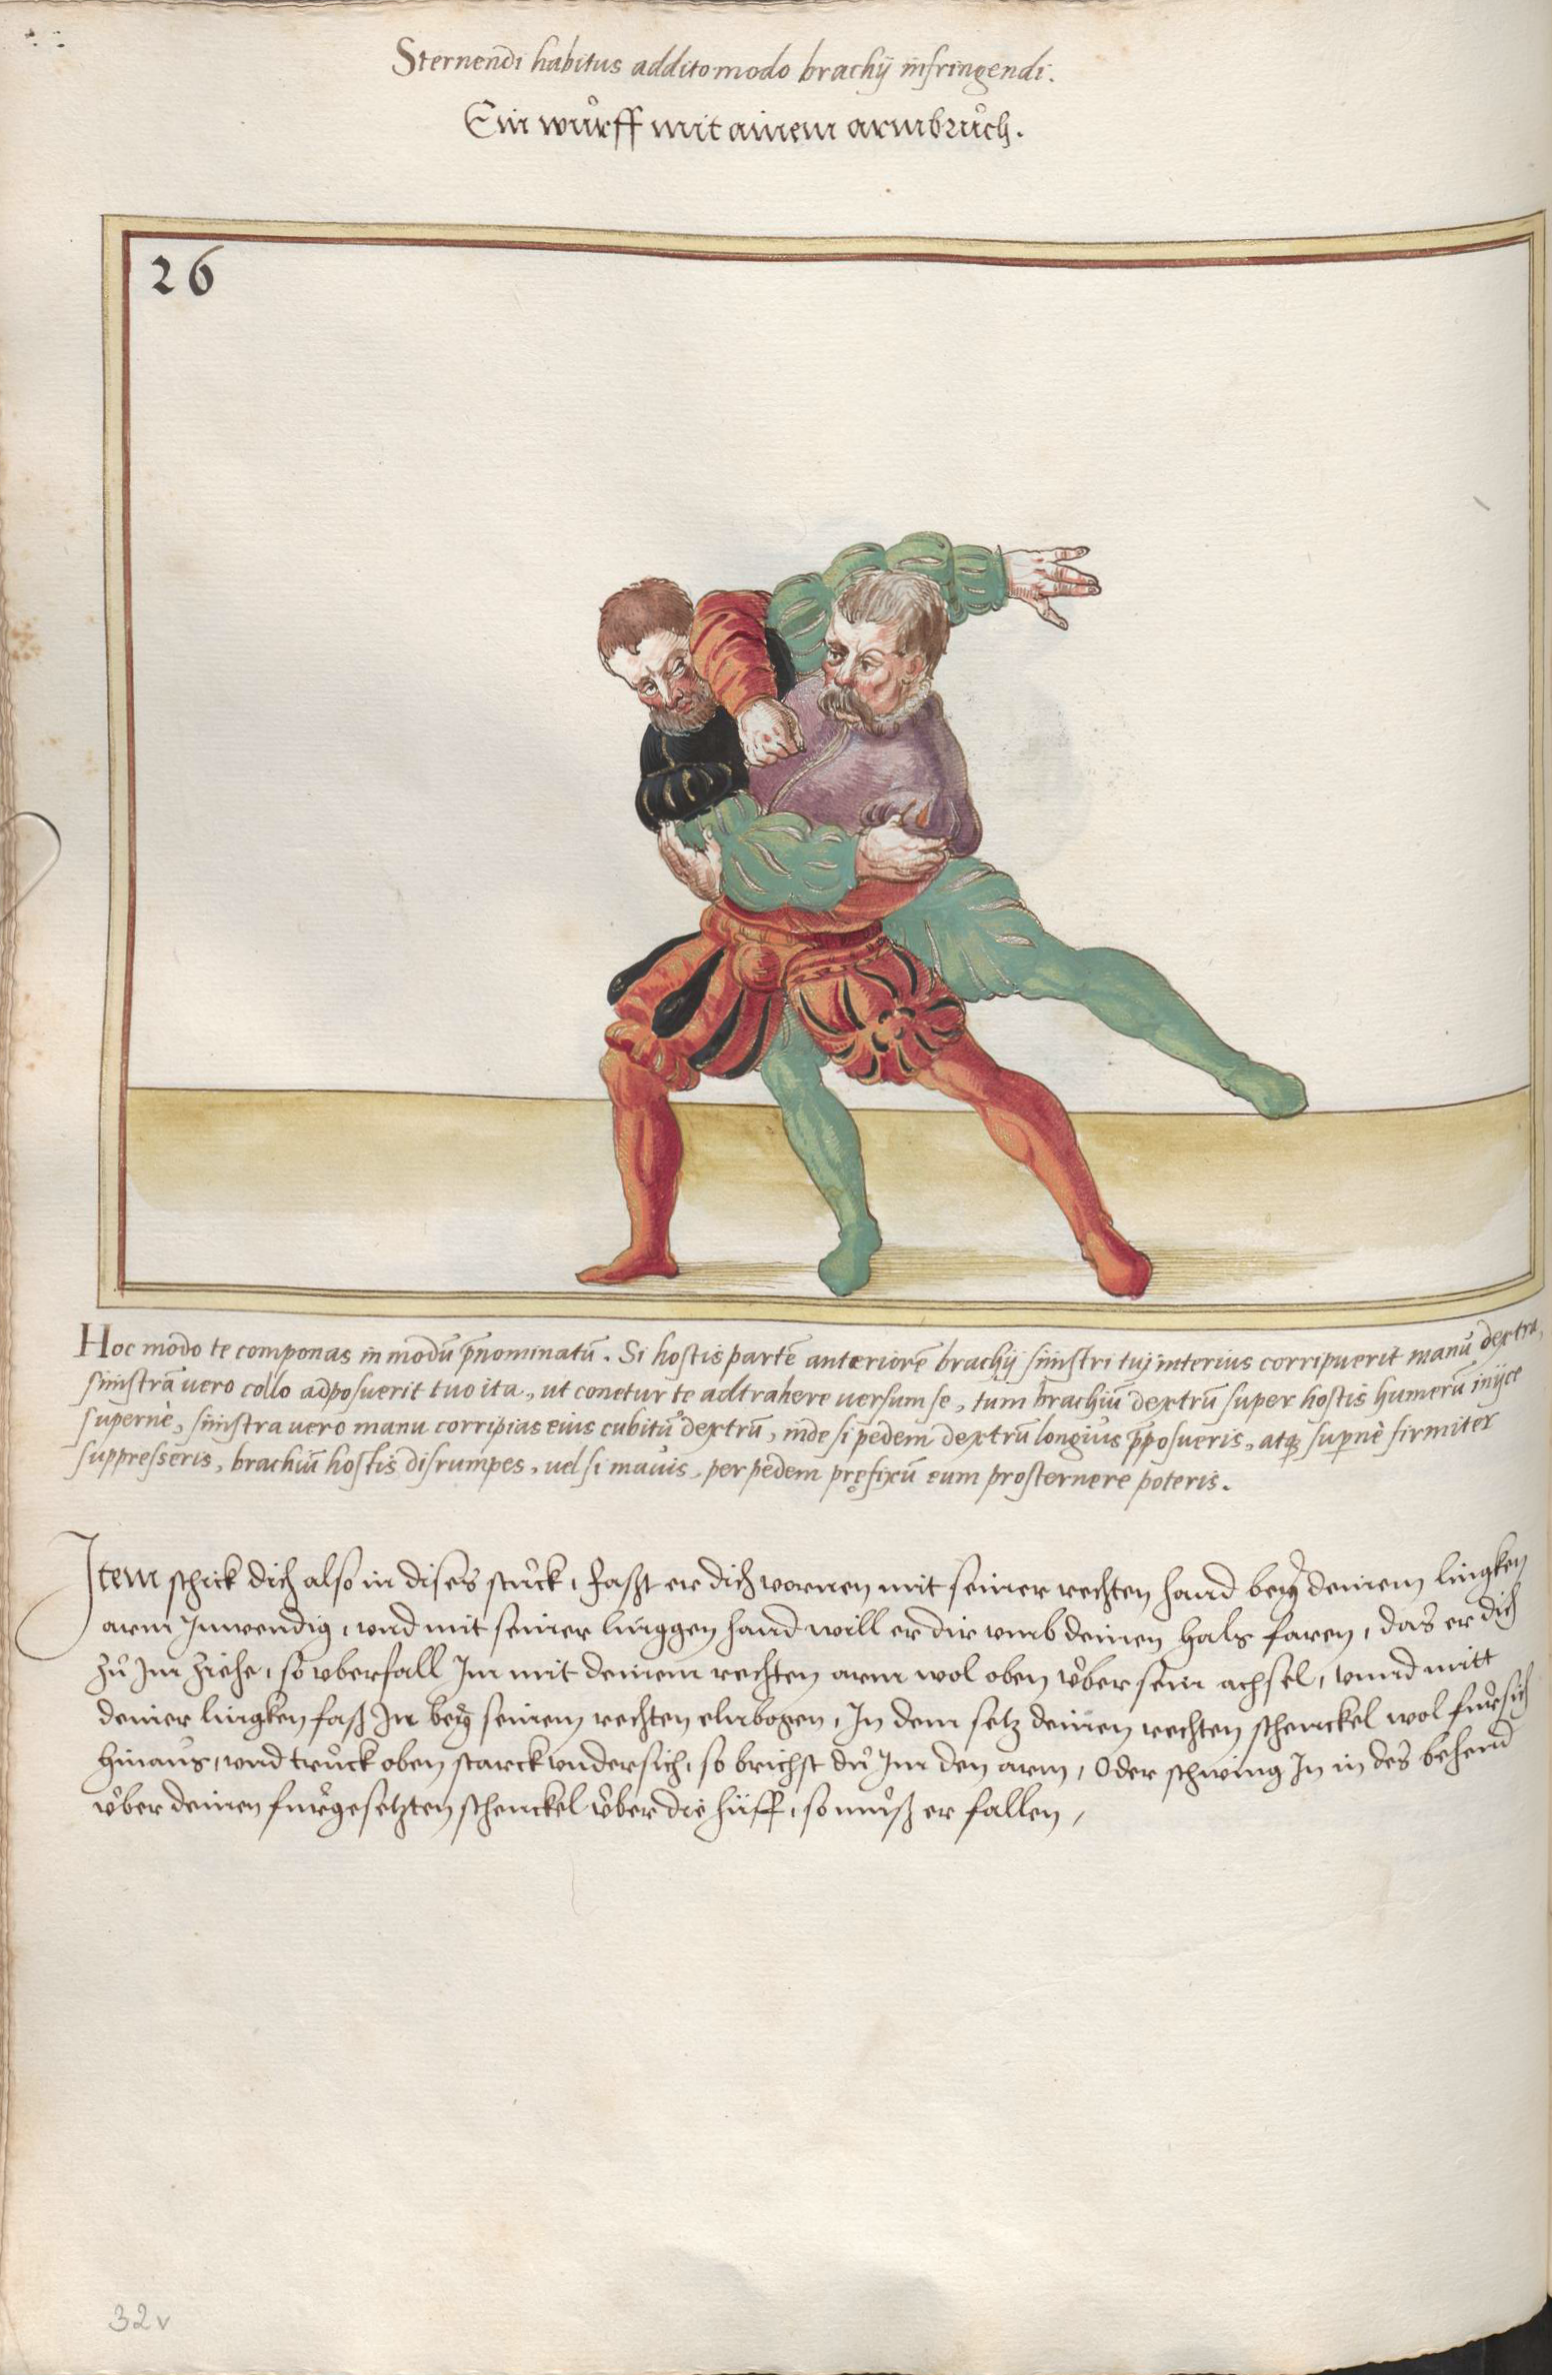 Sternendi habitus addito modo brachij infringendi.
Ein wůrff mit ainem armbrůch.
26
Hoc modo te componas in modũ p̄nominatũ. Si hostis partẽ anteriorẽ brachij sinistri tuj interius corripuerit manu dextra,
sinistra vero collo adposuerit tuo ita, ut conetur te adtrahere versum se, tum brachiũ dextrũ super hostis humerũ inijce
supernè, sinistra vero manu corripias eius cubitũ dextrũ, inde si pedem dextrũ longius p̄posueris, atq; supernè firmiter
suppresseris, brachiũ hostis disrumpes, uel si mauis, per pedem pręfixũ eum prosternere poteris.
Item schick dich also in dises stuck, fasst er dich vornen mit seiner rechten hand beÿ deinem lingken
arm Inwendig, vnd mit seiner linggen hand will er dir vmb deinen hals faren, das er dich
zů Im ziehe, so vberfall Im mit deinem rechten arm wol oben v̊ber sein achsel, vnnd mitt
deiner lingken faß In beÿ seinem rechten elnbogen, In dem setz deinen rechten schenckel wol fürsich
hinaus, vnd truck oben starck vndersich, so brichst dů Im den arm, Oder schwing In in des behend
v̊ber deinen fürgesetzten schenckel v̊ber die hüff, so můß er fallen,
32v